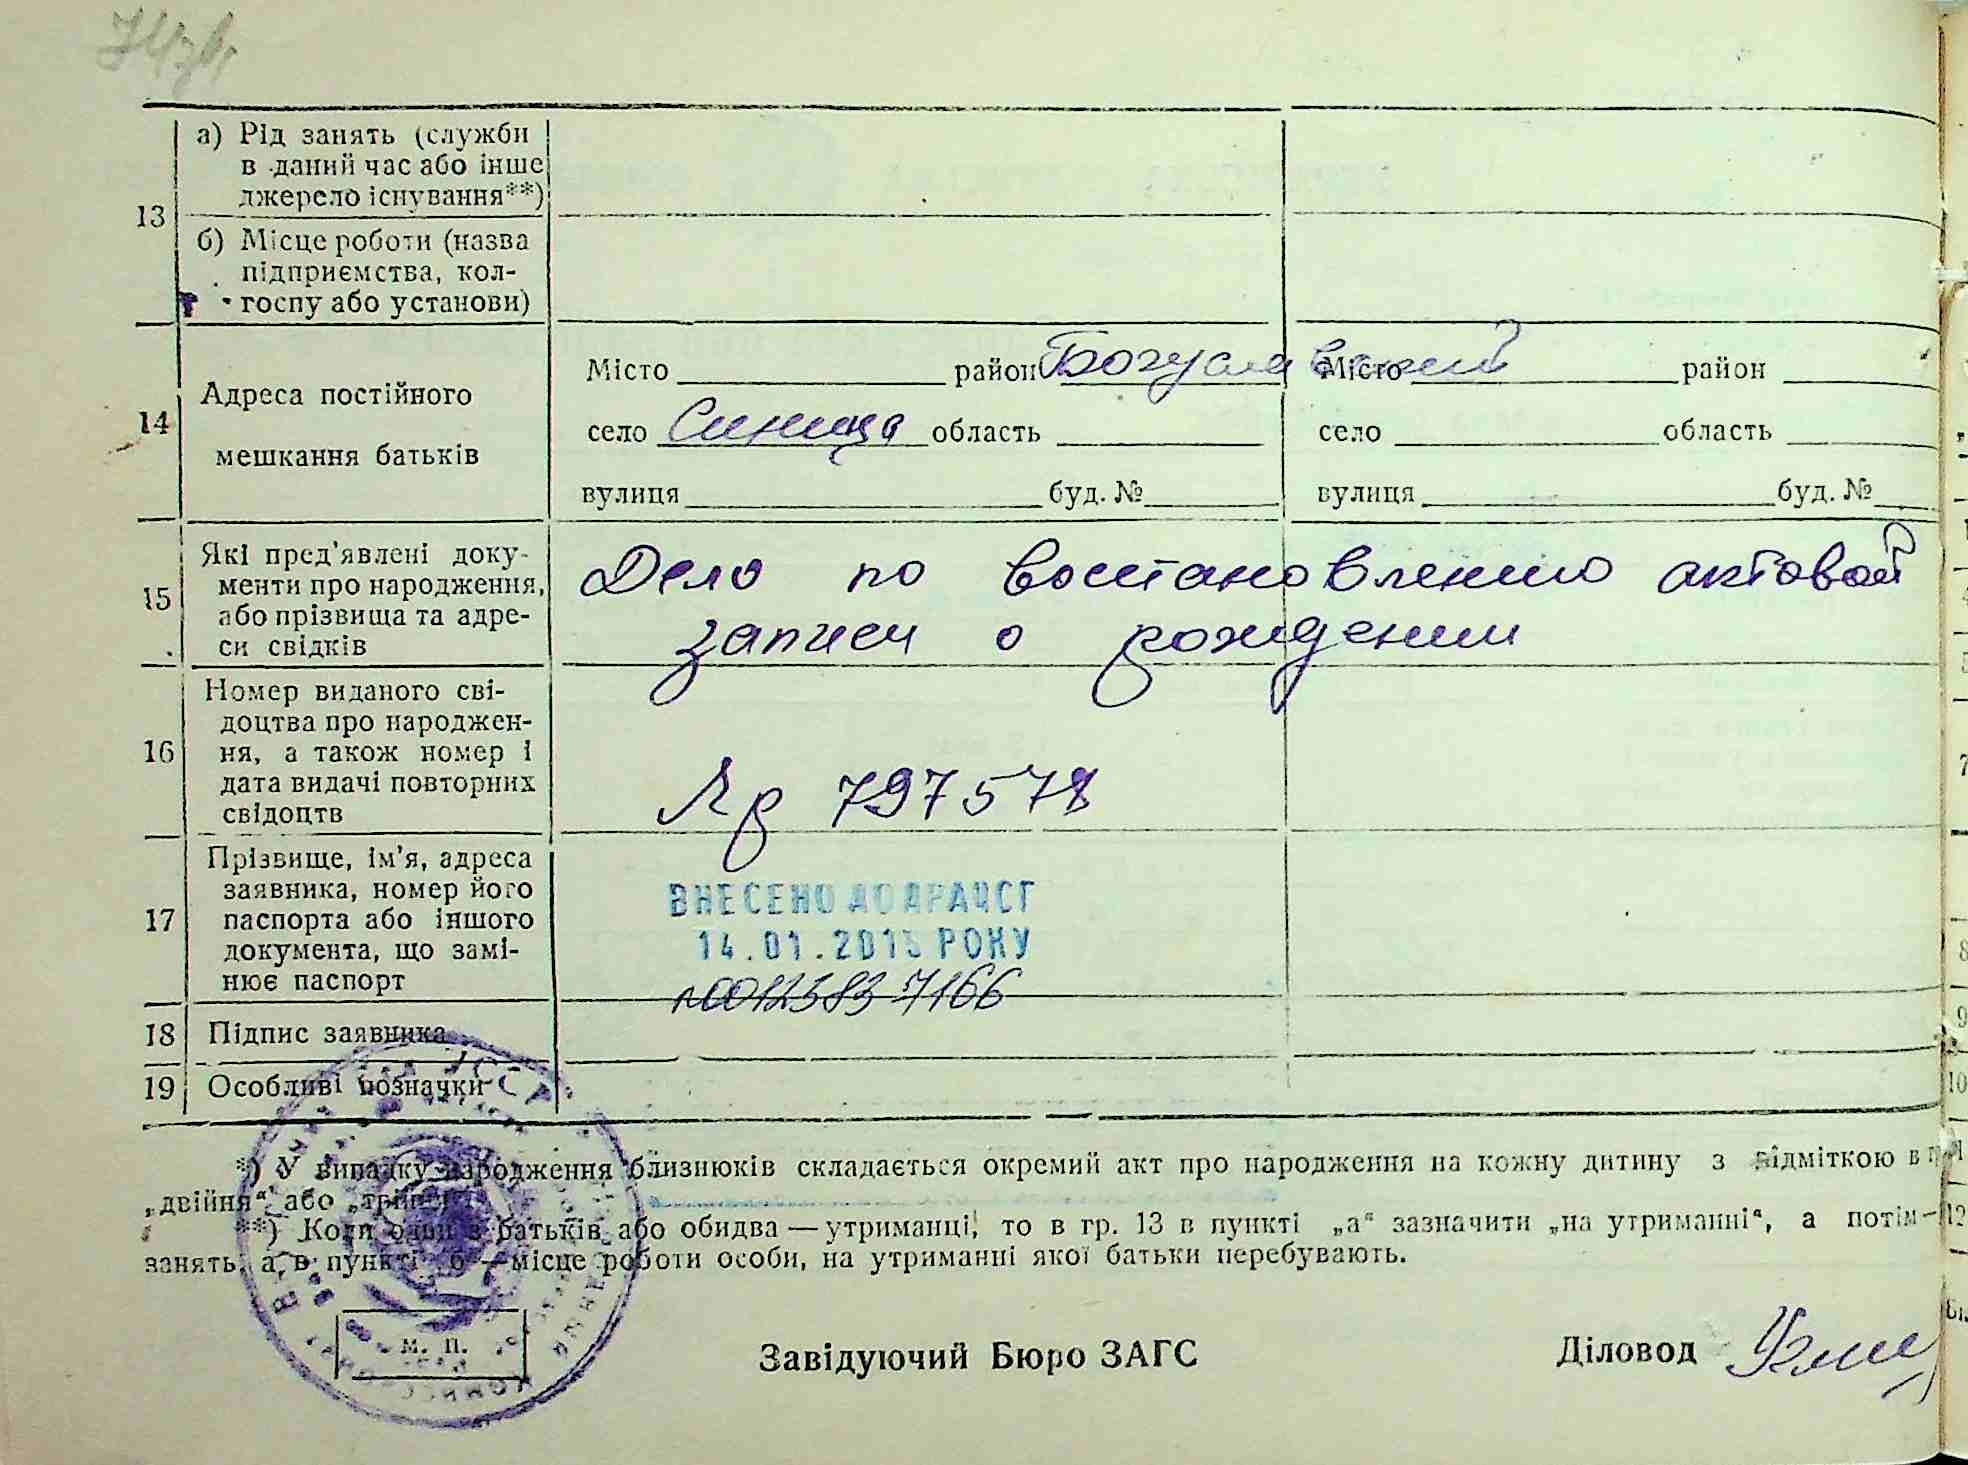 13
а) Рід занять (служби
в даний час або інше
джерело існування**)
б) Місце роботи (назва
підприємства, кол-
госпу або установи)
14
Адреса постійного
мешкання батьків
Місто район Богуславский Місто район
село Синица область село область
вулиця буд. № вулиця буд. №
15
Які пред'явлені доку-
менти про народження,
або прізвища та адре-
си свідків
Дело по восстановлению актовой
записи о рождении
16
Номер виданого сві-
доцтва про народжен-
ня, а також номер і
дата видачі повторних
свідоцтв
№ 797578
17
Прізвище, ім'я, адреса
заявника, номер його
паспорта або іншого
документа, що замі-
нює паспорт
ВНЕСЕНО ДО ДРАЦСГ
14.01.2015 РОКУ
№00125837166
18 Підпис заявника
19 Особливі позначки
*) У випадку народження близнюків складається окремий акт про народження на кожну дитину з відміткою в
„двійня“ або
**) Коли один з батьків або обидва — утриманці, то в гр. 13 в пункті „а“ зазначити „на утриманні“, а потім—
занять, а в пункті „б“—місце роботи особи, на утриманні якої батьки перебувають.
М. П.
Завідуючий Бюро ЗАГС
Діловод